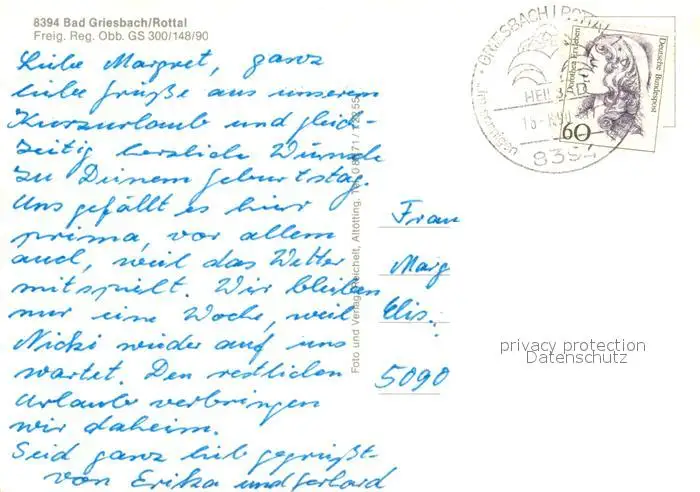 8394 Bad Griesbach/Rottal
Freig. Reg. Obb. GS 300/148/90
Liebe Margret, ganz
liebe Grüße aus unserem
Kurzurlaub und gleich-
zeitig herzliche Wünsche
zu Deinem Geburtstag.
Uns gefällt es hier
prima, vor allem
auch, weil das Wetter
mitspielt. Wir bleiben
nur eine Woche, weil
Nicki wieder auf uns
wartet. Den restlichen
Urlaub verbringen
wir daheim.
Seid ganz lieb gegrüßt
von Erika und Gerhard
Foto und Verlag Reichelt, Altötting, Tel.
Frau
Marg
Elis.
5090
GRIESBACH I ROTTAL
HEILBAD
8394
Dölauer Frieden
Deutsche Bundespost
60
privacy protection
Datenschutz